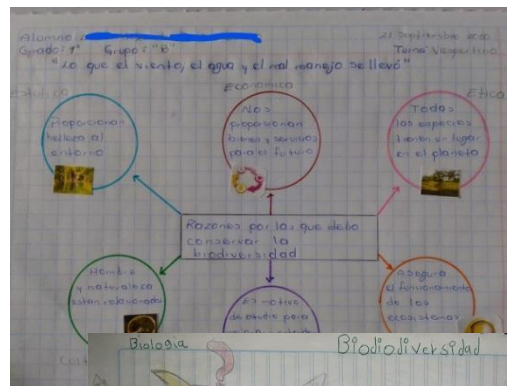 Alumno:
21 Septiembre 2020
Grado: 1° Grupo: "B"
Turno Vespertino
"Lo que el viento, el agua y el mal manejo se llevó"
Estético
Económico
Ético
Proporcionan
belleza al
entorno
Nos
proporcionan
bienes y servicios
para el futuro
Todas
las especies
tienen un lugar
en el planeta
Razones por las que debo
conservar la
biodiversidad
Hombre
y naturaleza
están relacionados
Es motivo
de estudio para
Asegura
el funcionamiento
de los
ecosistemas
Biologia
Biodiodiversidad